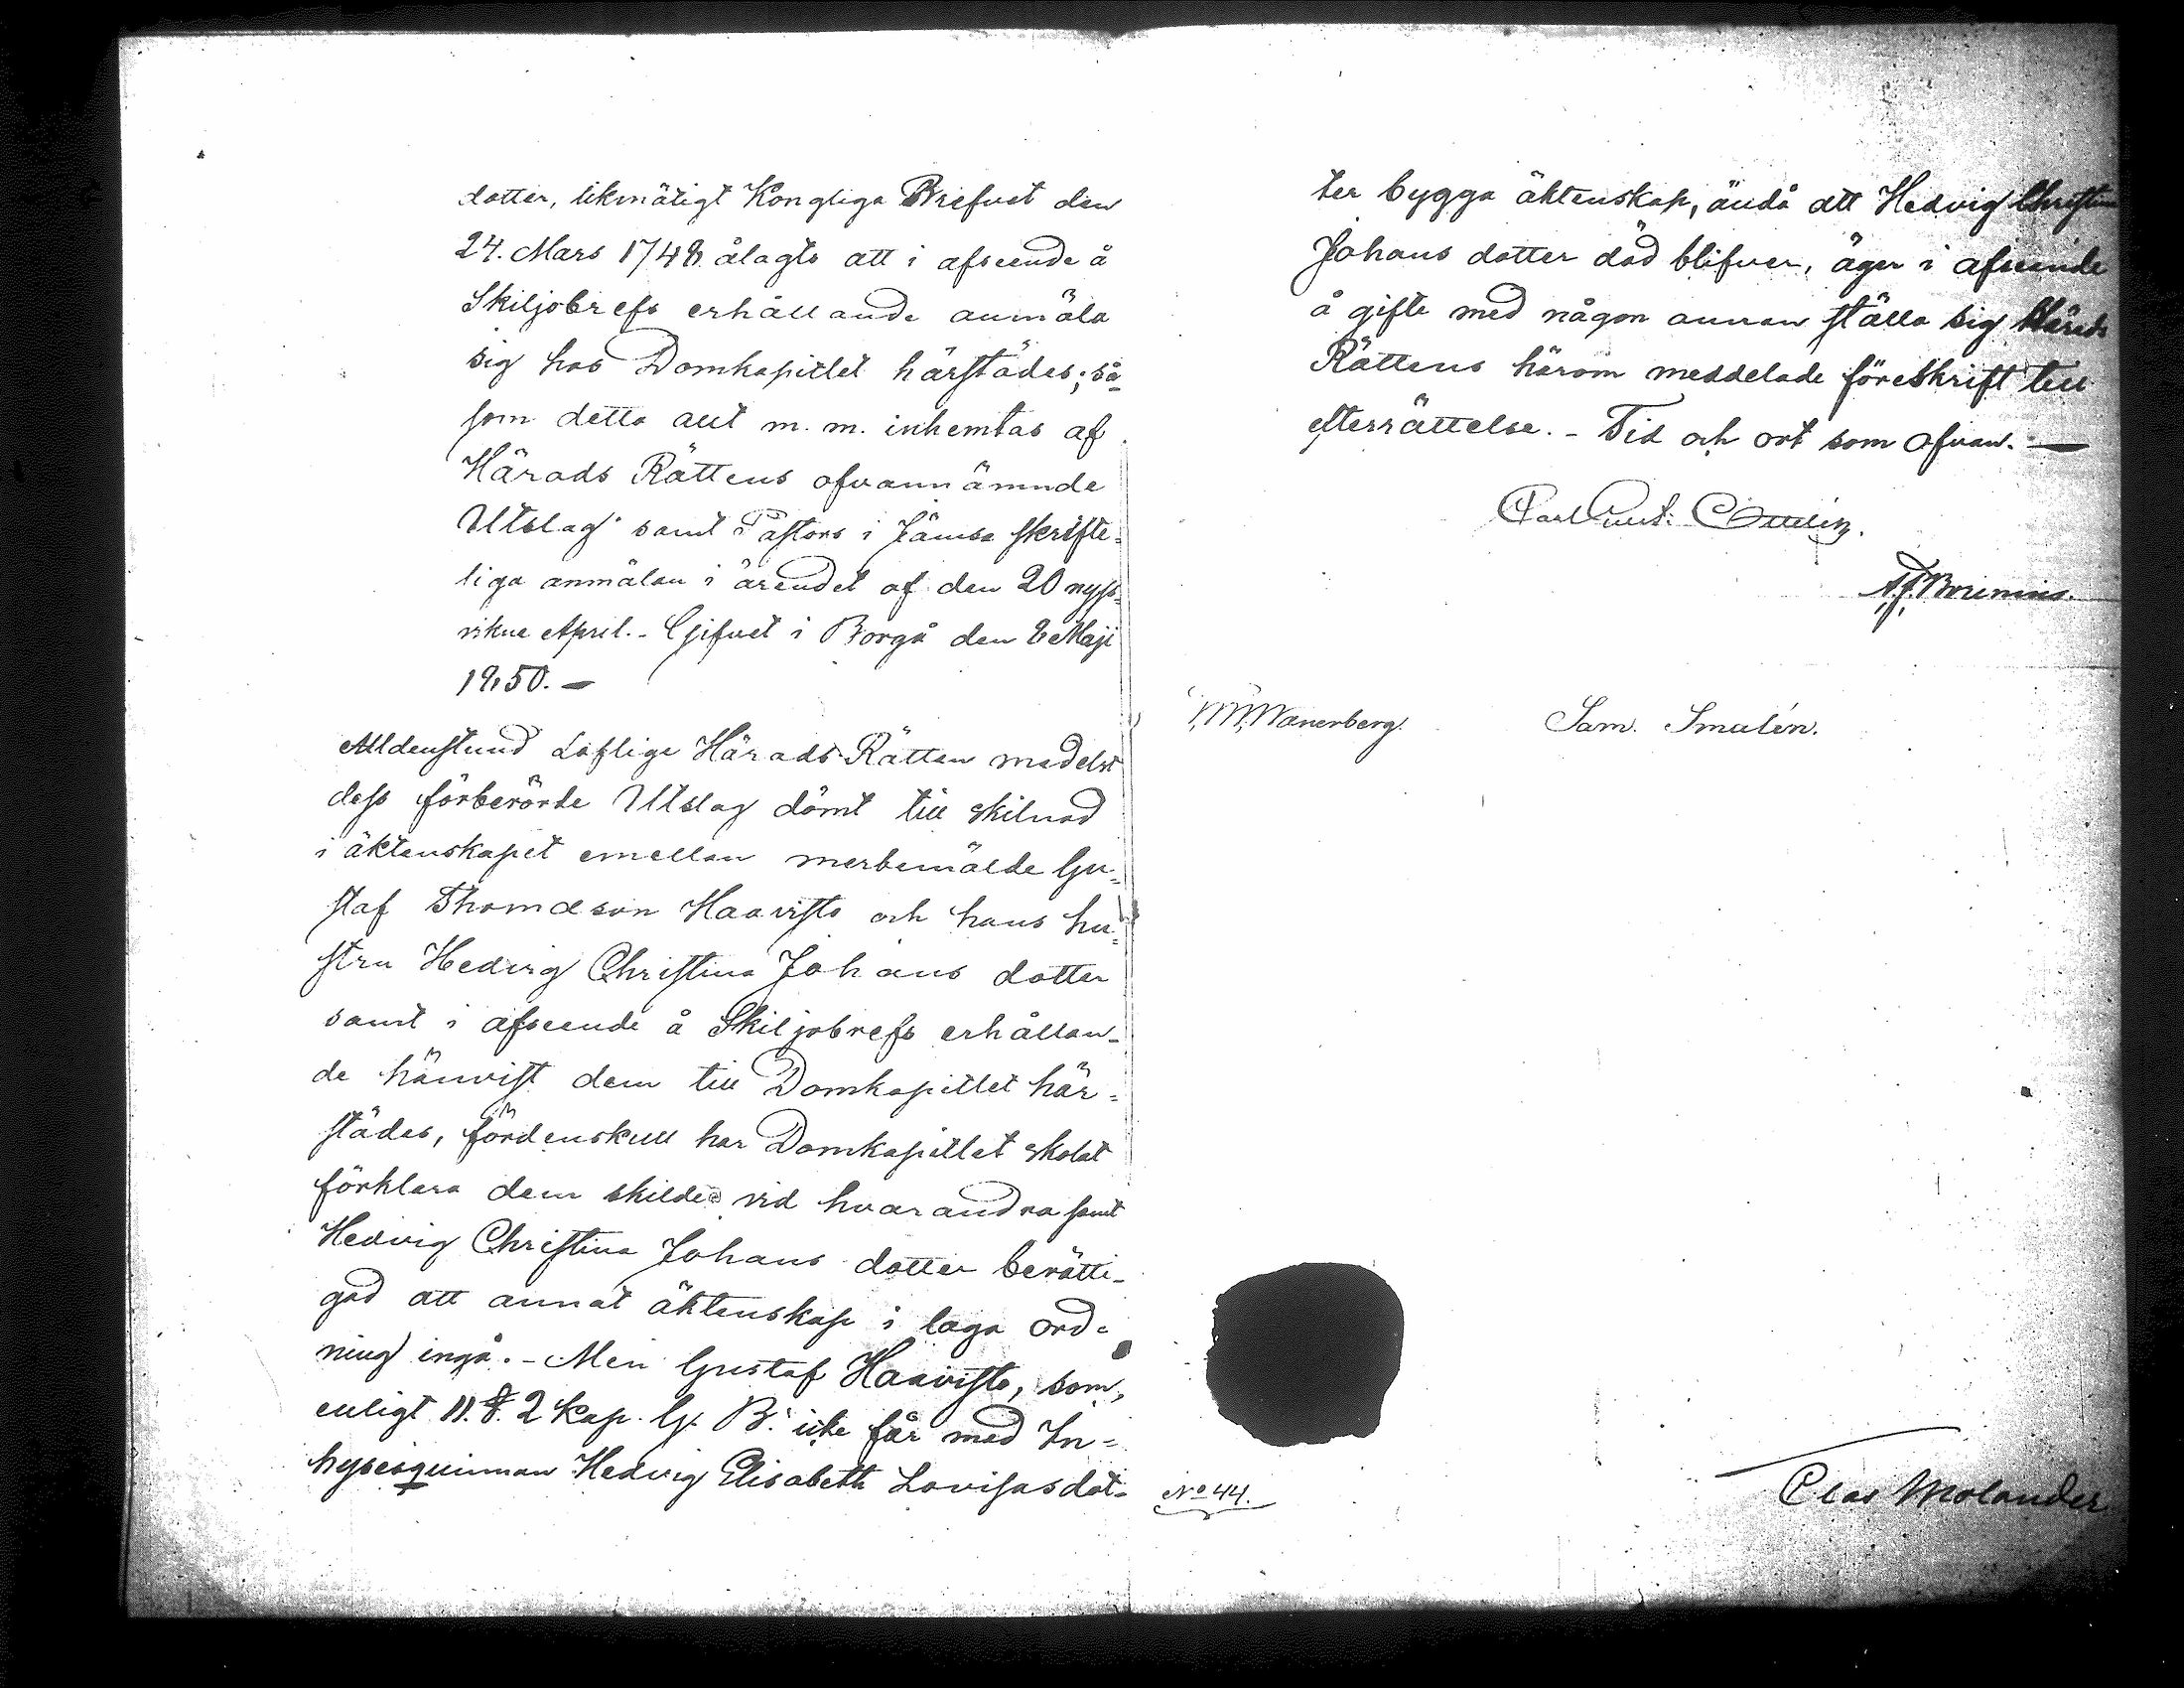 dotter, likmätigt Kongliga Brefvet den
24. Mars 1748 ålagts att i afseende å
Skiljobrefs erhållande anmäla
sig hos Domkapitlet härstädes; så=
som detta allt m. m. inhemtas af
Härads Rättens ofvannämnde
Utslag samt Pastors i Jämsä skrifte=
liga anmälan i ärendet af den 20 nyss=
vikne April. - Gifvet i Borgå den 8 Maji
1850. -
Alldenstund Loflige Härads-Rätten medelst
dess förberörde Utslag dömt till skilnad
i äktenskapet emellan merbemälde Gu=
staf Thomasson Haavisto och hans hu=
stru Hedvig Christina Johans dotter
samt i afseende å Skiljobrefs erhållan=
de hänvist dem till Domkapitlet här=
städes, fördenskull har Domkapitlet skolat
förklara dem skilde vid hvarandra samt
Hedvig Christina Johans dotter berätti-
gad att annat äktenskap i laga ord=
ning ingå. - Men Gustaf Haavisto, som,
enligt 11. §. 2 Kap. G. B. icke får med In=
hysesqvinnan Hedvig Elisabeth Lovisasdot-
ter bygga äktenskap, ändå att Hedvig Christina
Johans dotter död blifver, äger i afseende
å gifte med någon annan ställa sig Härads
Rättens härom meddelade föreskrift till
efterrättelse. - Tid och ort som ofvan. -
Carl Gust. Ottelin.
A. J. Borenius.
W. Wanerberg. Sam. Smalén.
No 44.
Clas Molander